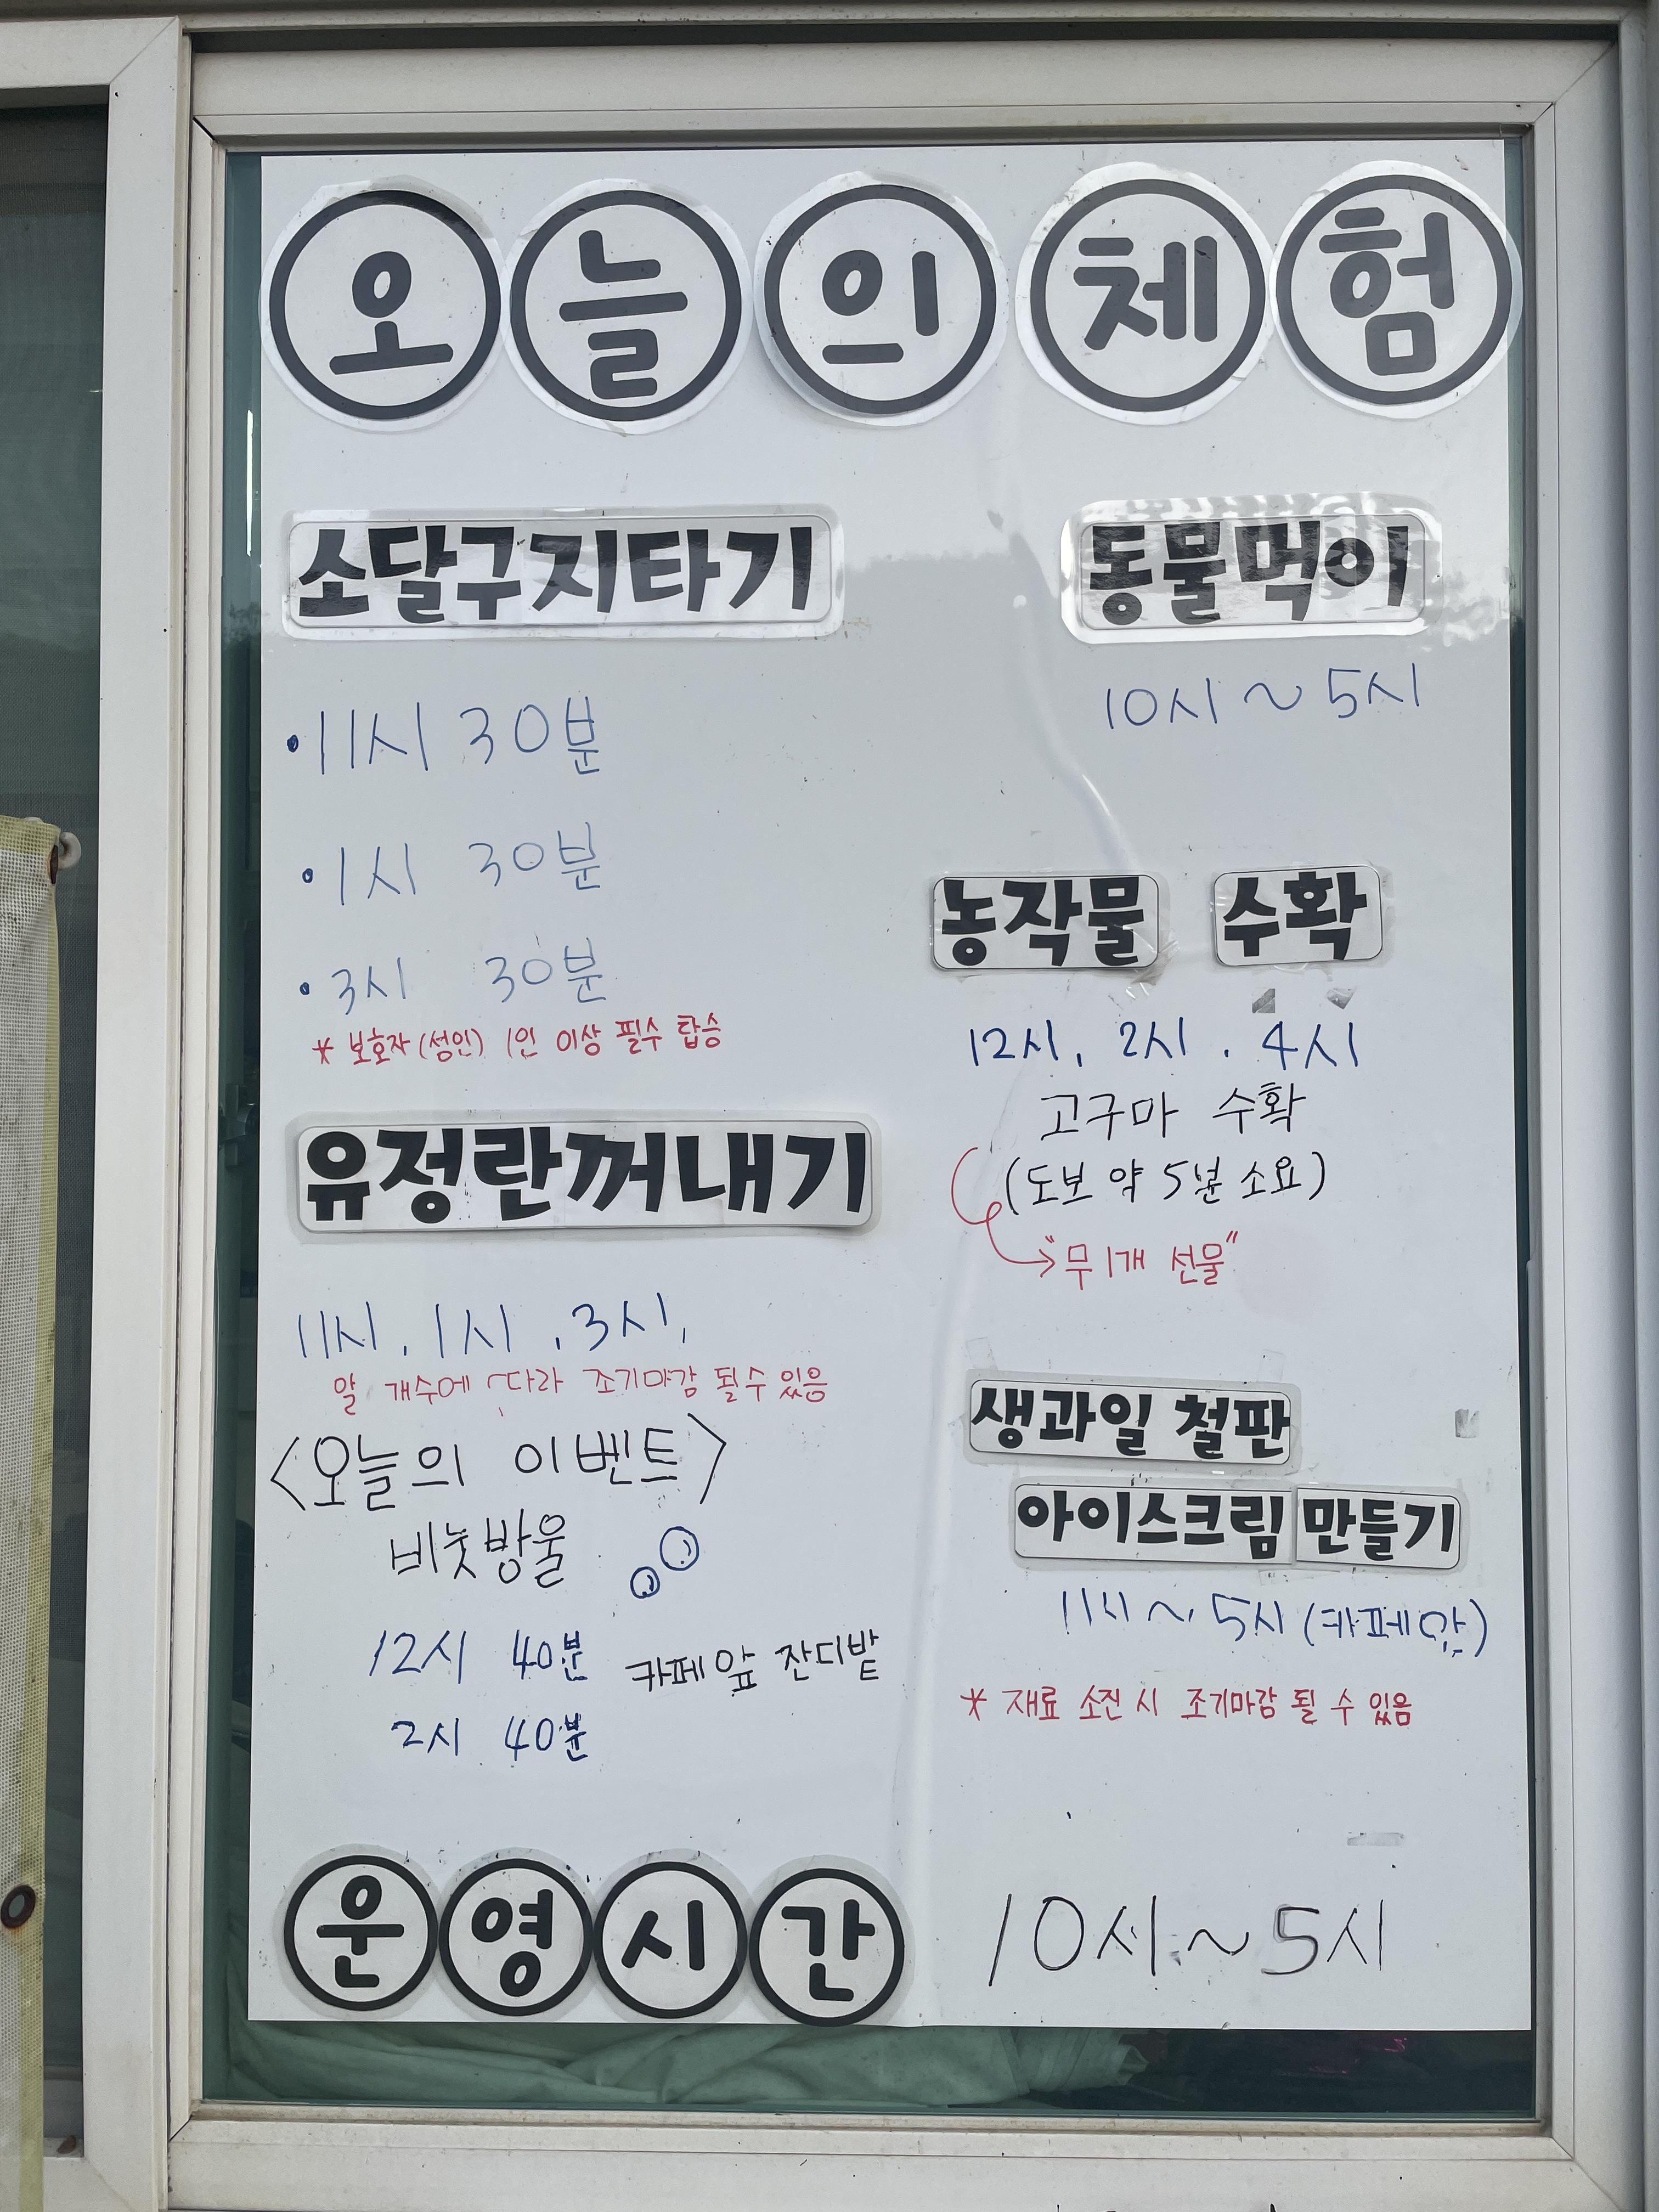 오늘의체험
소달구지타기
• 11시 30분
• 1시 30분
• 3시 30분
* 보호자(성인) 1인 이상 필수 탑승
유정란꺼내기
11시, 1시, 3시,
알 개수에 따라 조기마감 될 수 있음
<오늘의 이벤트>
비눗방울
12시 40분 카페앞 잔디밭
2시 40분
동물먹이
10시 ~ 5시
농작물 수확
12시, 2시. 4시
고구마 수확
(도보 약 5분 소요)
→ "무 1개 선물"
생과일 철판
아이스크림 만들기
11시 ~ 5시 (카페앞)
* 재료 소진 시 조기마감 될 수 있음
운영시간 10시 ~ 5시